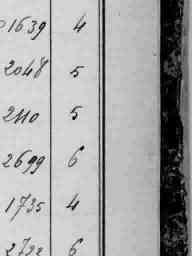 1639 4
2048 5
2110 5
2699 6
1735 4
2722 6